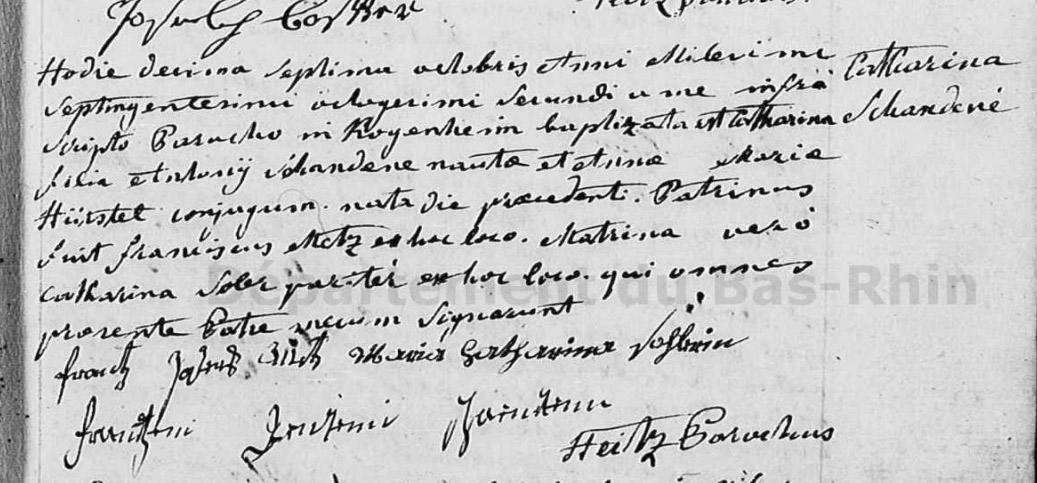 Joseph
Hodie decima septima octobris Anni Millesimi
septingentesimi octogesimi secundi a me infra
scripto Parocho in Rogenheim baptizata est Catharina
filia Antonij Schandene nautæ et Annæ Mariæ
Hürstel conjugum. nata die præcedenti. Patrinus
fuit franciscus Metz ex hoc loco. Matrina vero
Catharina Soler pariter ex hoc loco. qui omnes
præsente Patre mecum Signarunt
Catharina
Schandené
frantz Metz Maria Catharina
Heitz Parochus
Département du Bas-Rhin